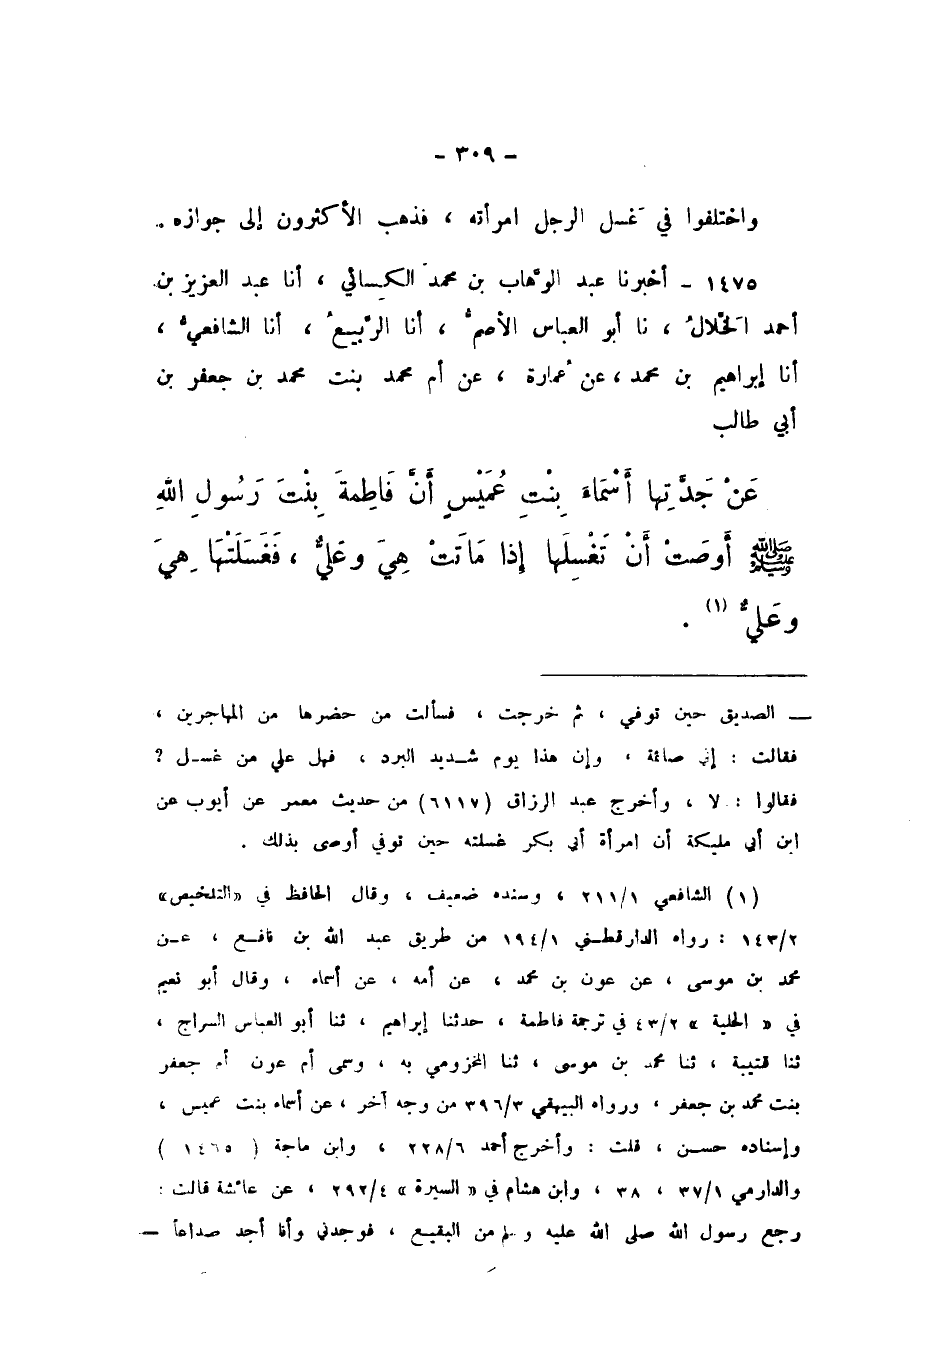 - ٣٠٩ -
واختلفوا في غَسل الرجل امرأته ، فذهب الأكثرون إلى جوازه .
١٤٧٥ - أخبرنا عبد الوهّاب بن محمد الكسائي ، أنا عبد العزيز بن
أحمد الخلّالُ ، نا أبو العباس الأصمُّ ، أنا الرّبيعُ ، أنا الشافعيُّ ،
أنا إبراهيم بن محمد ، عن عُمارة ، عن أم محمد بنت محمد بن جعفر بن
أبي طالب
عَنْ جَدَّتِها أَسْمَاءَ بِنْتِ عُمَيْسٍ أَنَّ فَاطِمَةَ بِنْتَ رَسُولِ اللهِ
ﷺ أَوصَتْ أَنْ تَغْسِلَها إذا مَاتَتْ هِيَ وعَليٌّ ، فَغَسَلَتْهَا هِيَ
وعَليٌّ (١) .
— الصديق حين توفي ، ثم خرجت ، فسألت من حضرها من المهاجرين ،
فقالت : إني صائمة ، وإن هذا يوم شديد البرد ، فهل علي من غسل ؟
فقالوا : لا ، وأخرج عبد الرزاق (٦١١٧) من حديث معمر عن أيوب عن
ابن أبي مليكة أن امرأة أبي بكر غسلته حين توفي أوصى بذلك .
(١) الشافعي ٢١١/١ ، وسنده ضعيف ، وقال الحافظ في «التلخيص»
١٤٣/٢ : رواه الدارقطني ١٩٤/١ من طريق عبد الله بن نافع ، عن
محمد بن موسى ، عن عون بن محمد ، عن أمه ، عن أسماء ، وقال أبو نعيم
في « الحلية » ٤٣/٢ في ترجمة فاطمة ، حدثنا إبراهيم ، ثنا أبو العباس السراج ،
ثنا قتيبة ، ثنا محمد بن موسى ، ثنا المخزومي به ، وسمى أم عون أم جعفر
بنت محمد بن جعفر ، ورواه البيهقي ٣٩٦/٣ من وجه آخر ، عن أسماء بنت عميس ،
وإسناده حسن ، قلت : وأخرج أحمد ٢٢٨/٦ ، وابن ماجة ( ١٤٦٥ )
والدارمي ٣٧/١ ، ٣٨ ، وابن هشام في « السيرة » ٢٩٢/٤ ، عن عائشة قالت :
رجع رسول الله صلى الله عليه وسلم من البقيع ، فوجدني وأنا أجد صداعاً —